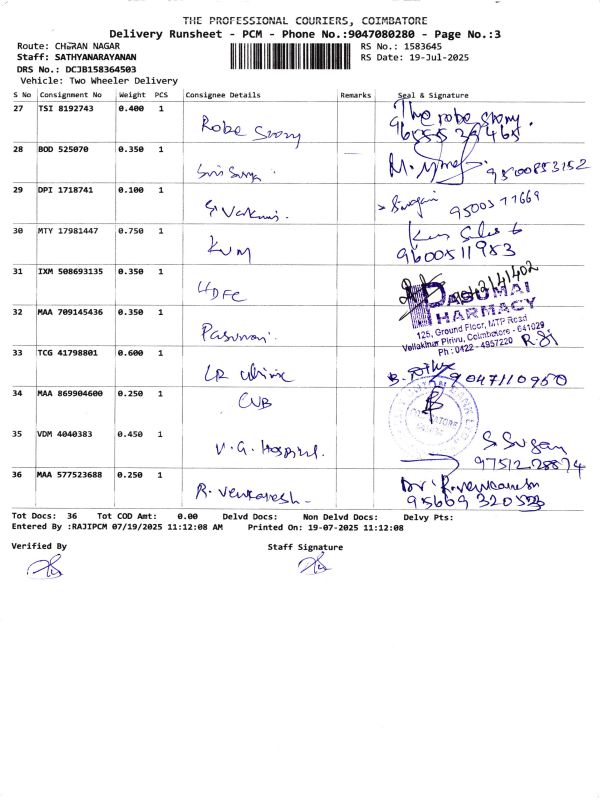 THE PROFESSIONAL COURIERS, COIMBATORE
Delivery Runsheet - PCM - Phone No.:9047080280 - Page No.:3
Route: CHARAN NAGAR RS No.: 1583645
Staff: SATHYANARAYANAN RS Date: 19-Jul-2025
DRS No.: DCJB158364503
Vehicle: Two Wheeler Delivery
S No Consignment No Weight PCS Consignee Details Remarks Seal & Signature
27 TSI 8192743 0.400 1 Robe Story The robe story.
28 BOD 525070 0.350 1 9500853152
29 DPI 1718741 0.100 1 9500377669
30 MTY 17981447 0.750 1 KVM
9600511953
31 IXM 508693135 0.350 1 HDFC
32 MAA 709145436 0.350 1 Pasumai
PASUMAI
PHARMACY
125, Ground Floor, MTP Road
Vellakinar Pirivu, Coimbatore - 641029
Ph : 0422 - 4957220
33 TCG 41798801 0.600 1 LR 9047110950
34 MAA 869904600 0.250 1 CUB
35 VDM 4040383 0.450 1 V.G. Hospital. S. Sugan
9751228874
36 MAA 577523688 0.250 1 R. Venkatesh Dr. R. Venkatesh
Tot Docs: 36 Tot COD Amt: 0.00 Delvd Docs: Non Delvd Docs: Delvy Pts:
Entered By :RAJIPCM 07/19/2025 11:12:08 AM Printed On: 19-07-2025 11:12:08
Verified By Staff Signature